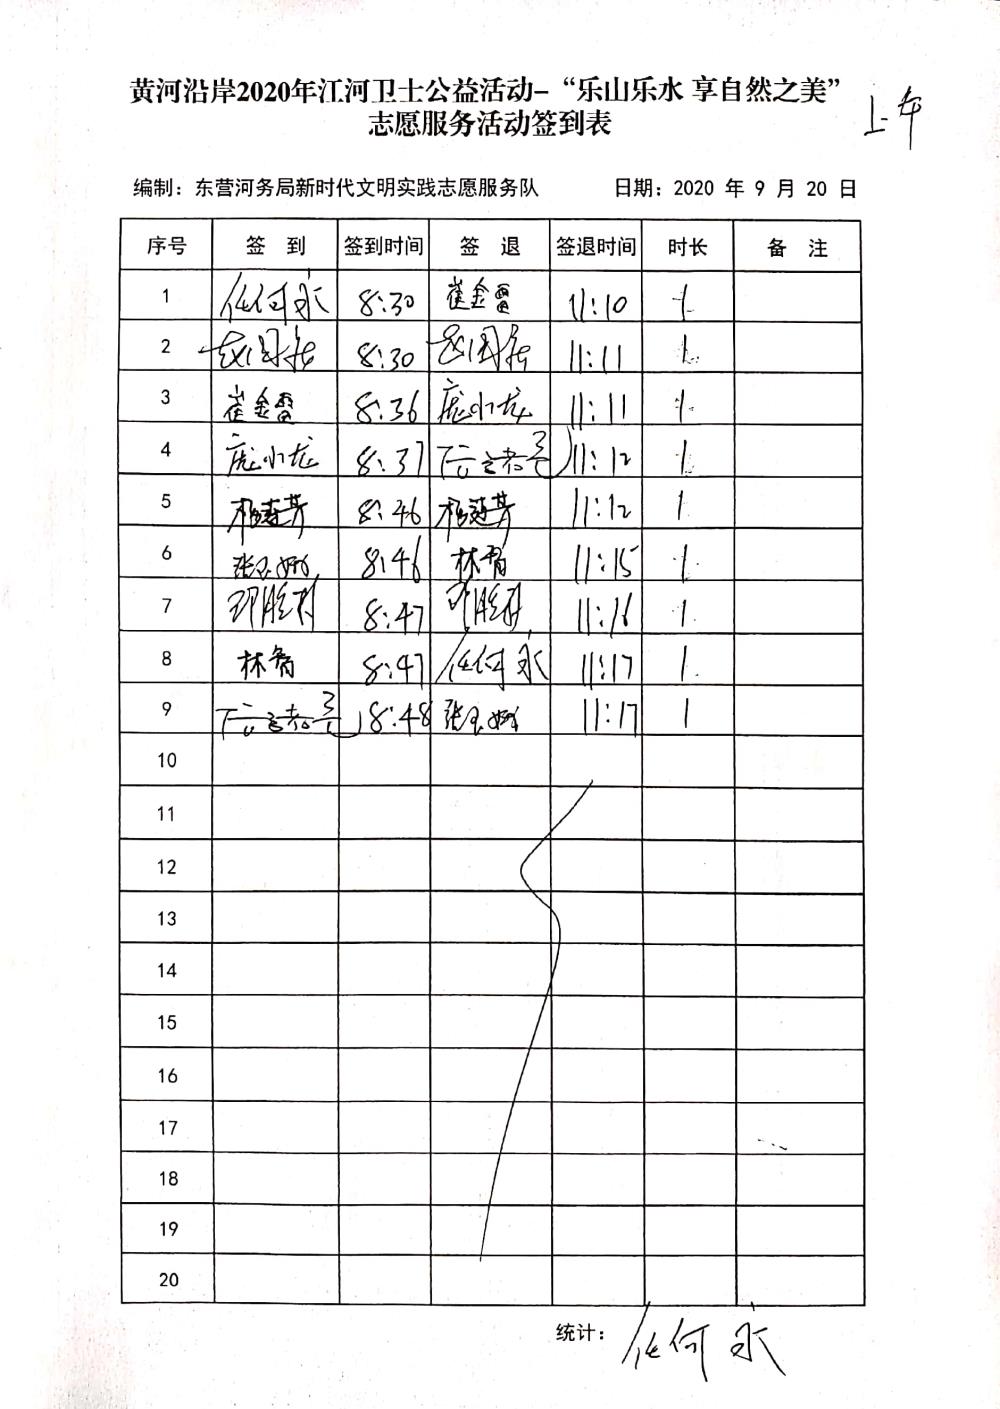 黄河沿岸2020年江河卫士公益活动-“乐山乐水 享自然之美”
志愿服务活动签到表
上午
编制：东营河务局新时代文明实践志愿服务队 日期：2020 年 9 月 20 日
序号 签 到 签到时间 签 退 签退时间 时长 备 注
1 任何永 8:30 崔金雷 11:10 1
2 8:30 11:11 1
3 崔金雷 8:36 庞小龙 11:11 1
4 庞小龙 8:37 11:12 1
5 8:46 11:12 1
6 张玉娜 8:46 林智 11:15 1
7 邓胜利 8:47 邓胜利 11:16 1
8 林智 8:47 任何永 11:17 1
9 8:48 张玉娜 11:17 1
10
11
12
13
14
15
16
17
18
19
20
统计：任何永